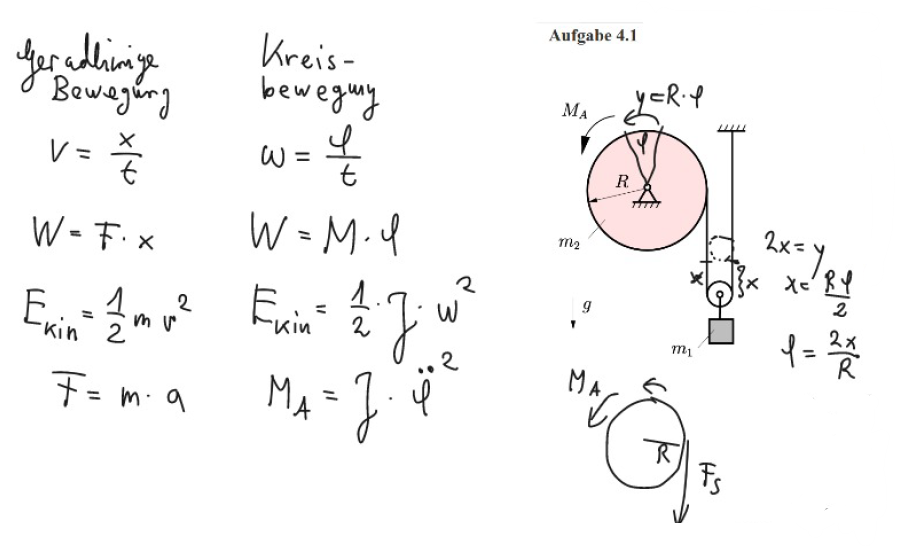 Geradlinige
Bewegung
V = x/t
W = F · x
E_kin = 1/2 m v²
F = m · a
Kreis-
bewegung
ω = φ/t
W = M · φ
E_kin = 1/2 · J · ω²
M_A = J · φ̈²
Aufgabe 4.1
y = R · φ
M_A
φ
R
m₂
2x = y
x
x
x = Rφ/2
g
m₁
φ = 2x/R
M_A
R
F_S